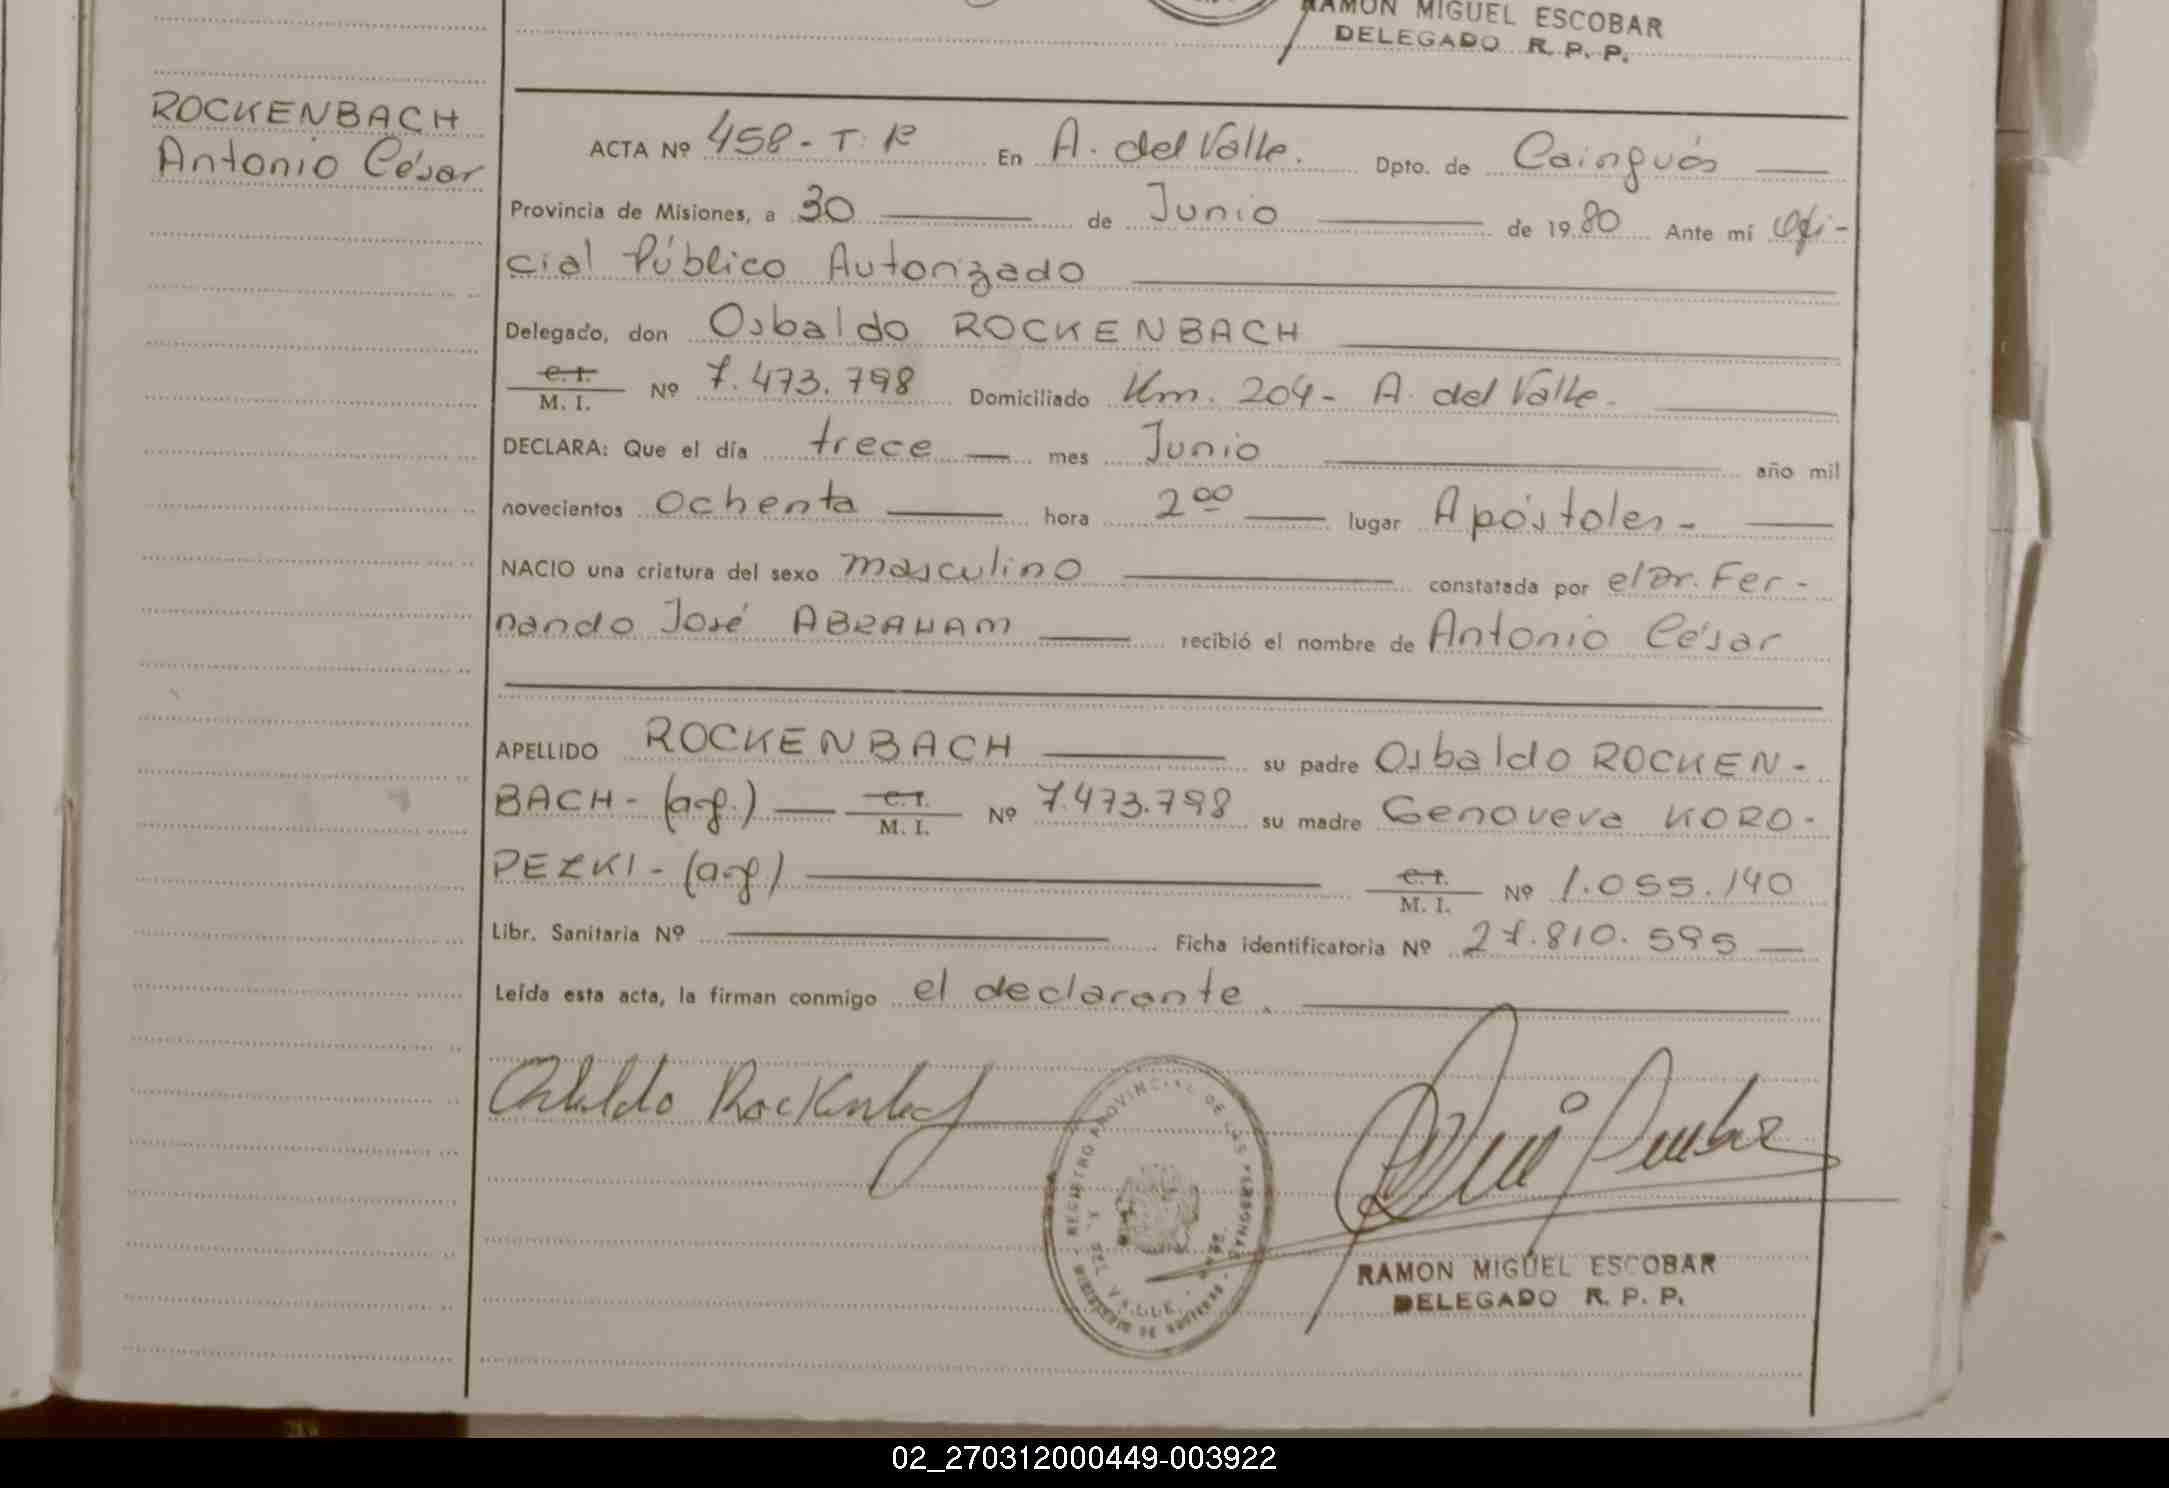 RAMON MIGUEL ESCOBAR
DELEGADO R. P. P.
ROCKENBACH
Antonio César
ACTA Nº 458 - T. R En A. del Valle. Dpto. de Cainguás
Provincia de Misiones, a 30 de Junio de 1980 Ante mí Ofi-
cial Público Autorizado
Delegado, don Osbaldo ROCKENBACH
C. I.
M. I. Nº 7.473.798 Domiciliado Km. 204 - A. del Valle.
DECLARA: Que el día trece mes Junio año mil
novecientos ochenta hora 2 00 lugar Apóstoles -
NACIO una criatura del sexo masculino constatada por el Dr. Fer-
nando José ABRAHAM recibió el nombre de Antonio César
APELLIDO ROCKENBACH su padre Osbaldo ROCKEN-
BACH - (arg.) C. I. M. I. Nº 7.473.798 su madre Genoveva KORO-
PEZKI - (arg) C. I. M. I. Nº 1.055.140
Libr. Sanitaria Nº Ficha identificatoria Nº 27.810.595
Leída esta acta, la firman conmigo el declarante.
Osbaldo Rockenbach
REGISTRO PROVINCIAL DE LAS PERSONAS
A. DEL VALLE
MINISTERIO DE GOBIERNO
RAMON MIGUEL ESCOBAR
DELEGADO R. P. P.
02_270312000449-003922